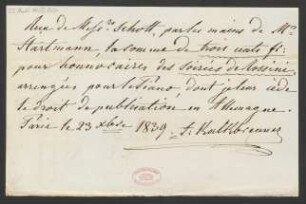 Reçu de Mess.rs Schott, par les mains de Mr.
Hartmann, la somme de trois cents fr:
pour honnoraires des soirées de Rossini,
arrangées pour le Piano, dont je leur cède
le droit de publication en Allemagne.
Paris le 23 xbre 1839. F. Kalkbrenner